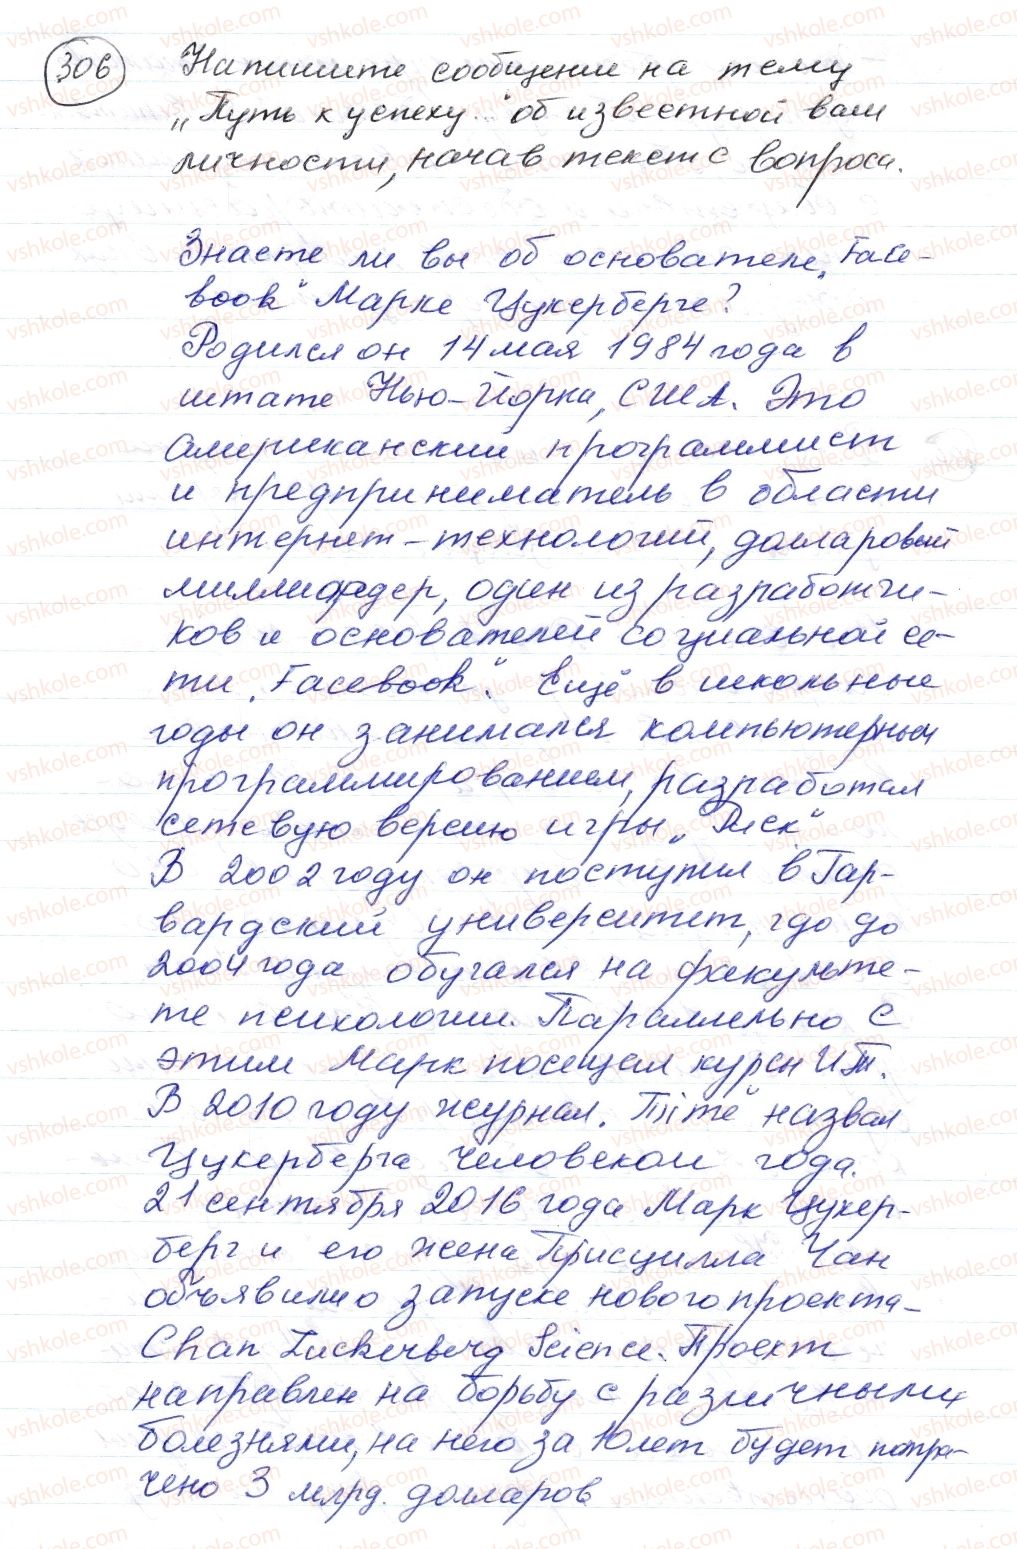 306 Напишите сообщение на тему
„Путь к успеху..." об известной вам
личности, начав текст с вопроса.
Знаете ли вы об основателе „Face-
book" Марке Цукерберге?
Родился он 14 мая 1984 года в
штате Нью-Йорка, США. Это
американский программист
и предприниматель в области
интернет-технологий, долларовый
миллиардер, один из разработчи-
ков и основателей социальной се-
ти „Facebook". Ещё в школьные
годы он занимался компьютерным
программированием, разработал
сетевую версию игры „Риск"
В 2002 году он поступил в Гар-
вардский университет, где до
2004 года обучался на факульте-
те психологии. Параллельно с
этим Марк посещал курсы ИТ.
В 2010 году журнал „Time" назвал
Цукерберга человеком года.
21 сентября 2016 года Марк Цукер-
берг и его жена Присцилла Чан
объявили о запуске нового проекта-
Chan Zuckerberg Science. Проект
направлен на борьбу с различными
болезнями, на него за 10 лет будет потра-
чено 3 млрд. долларов